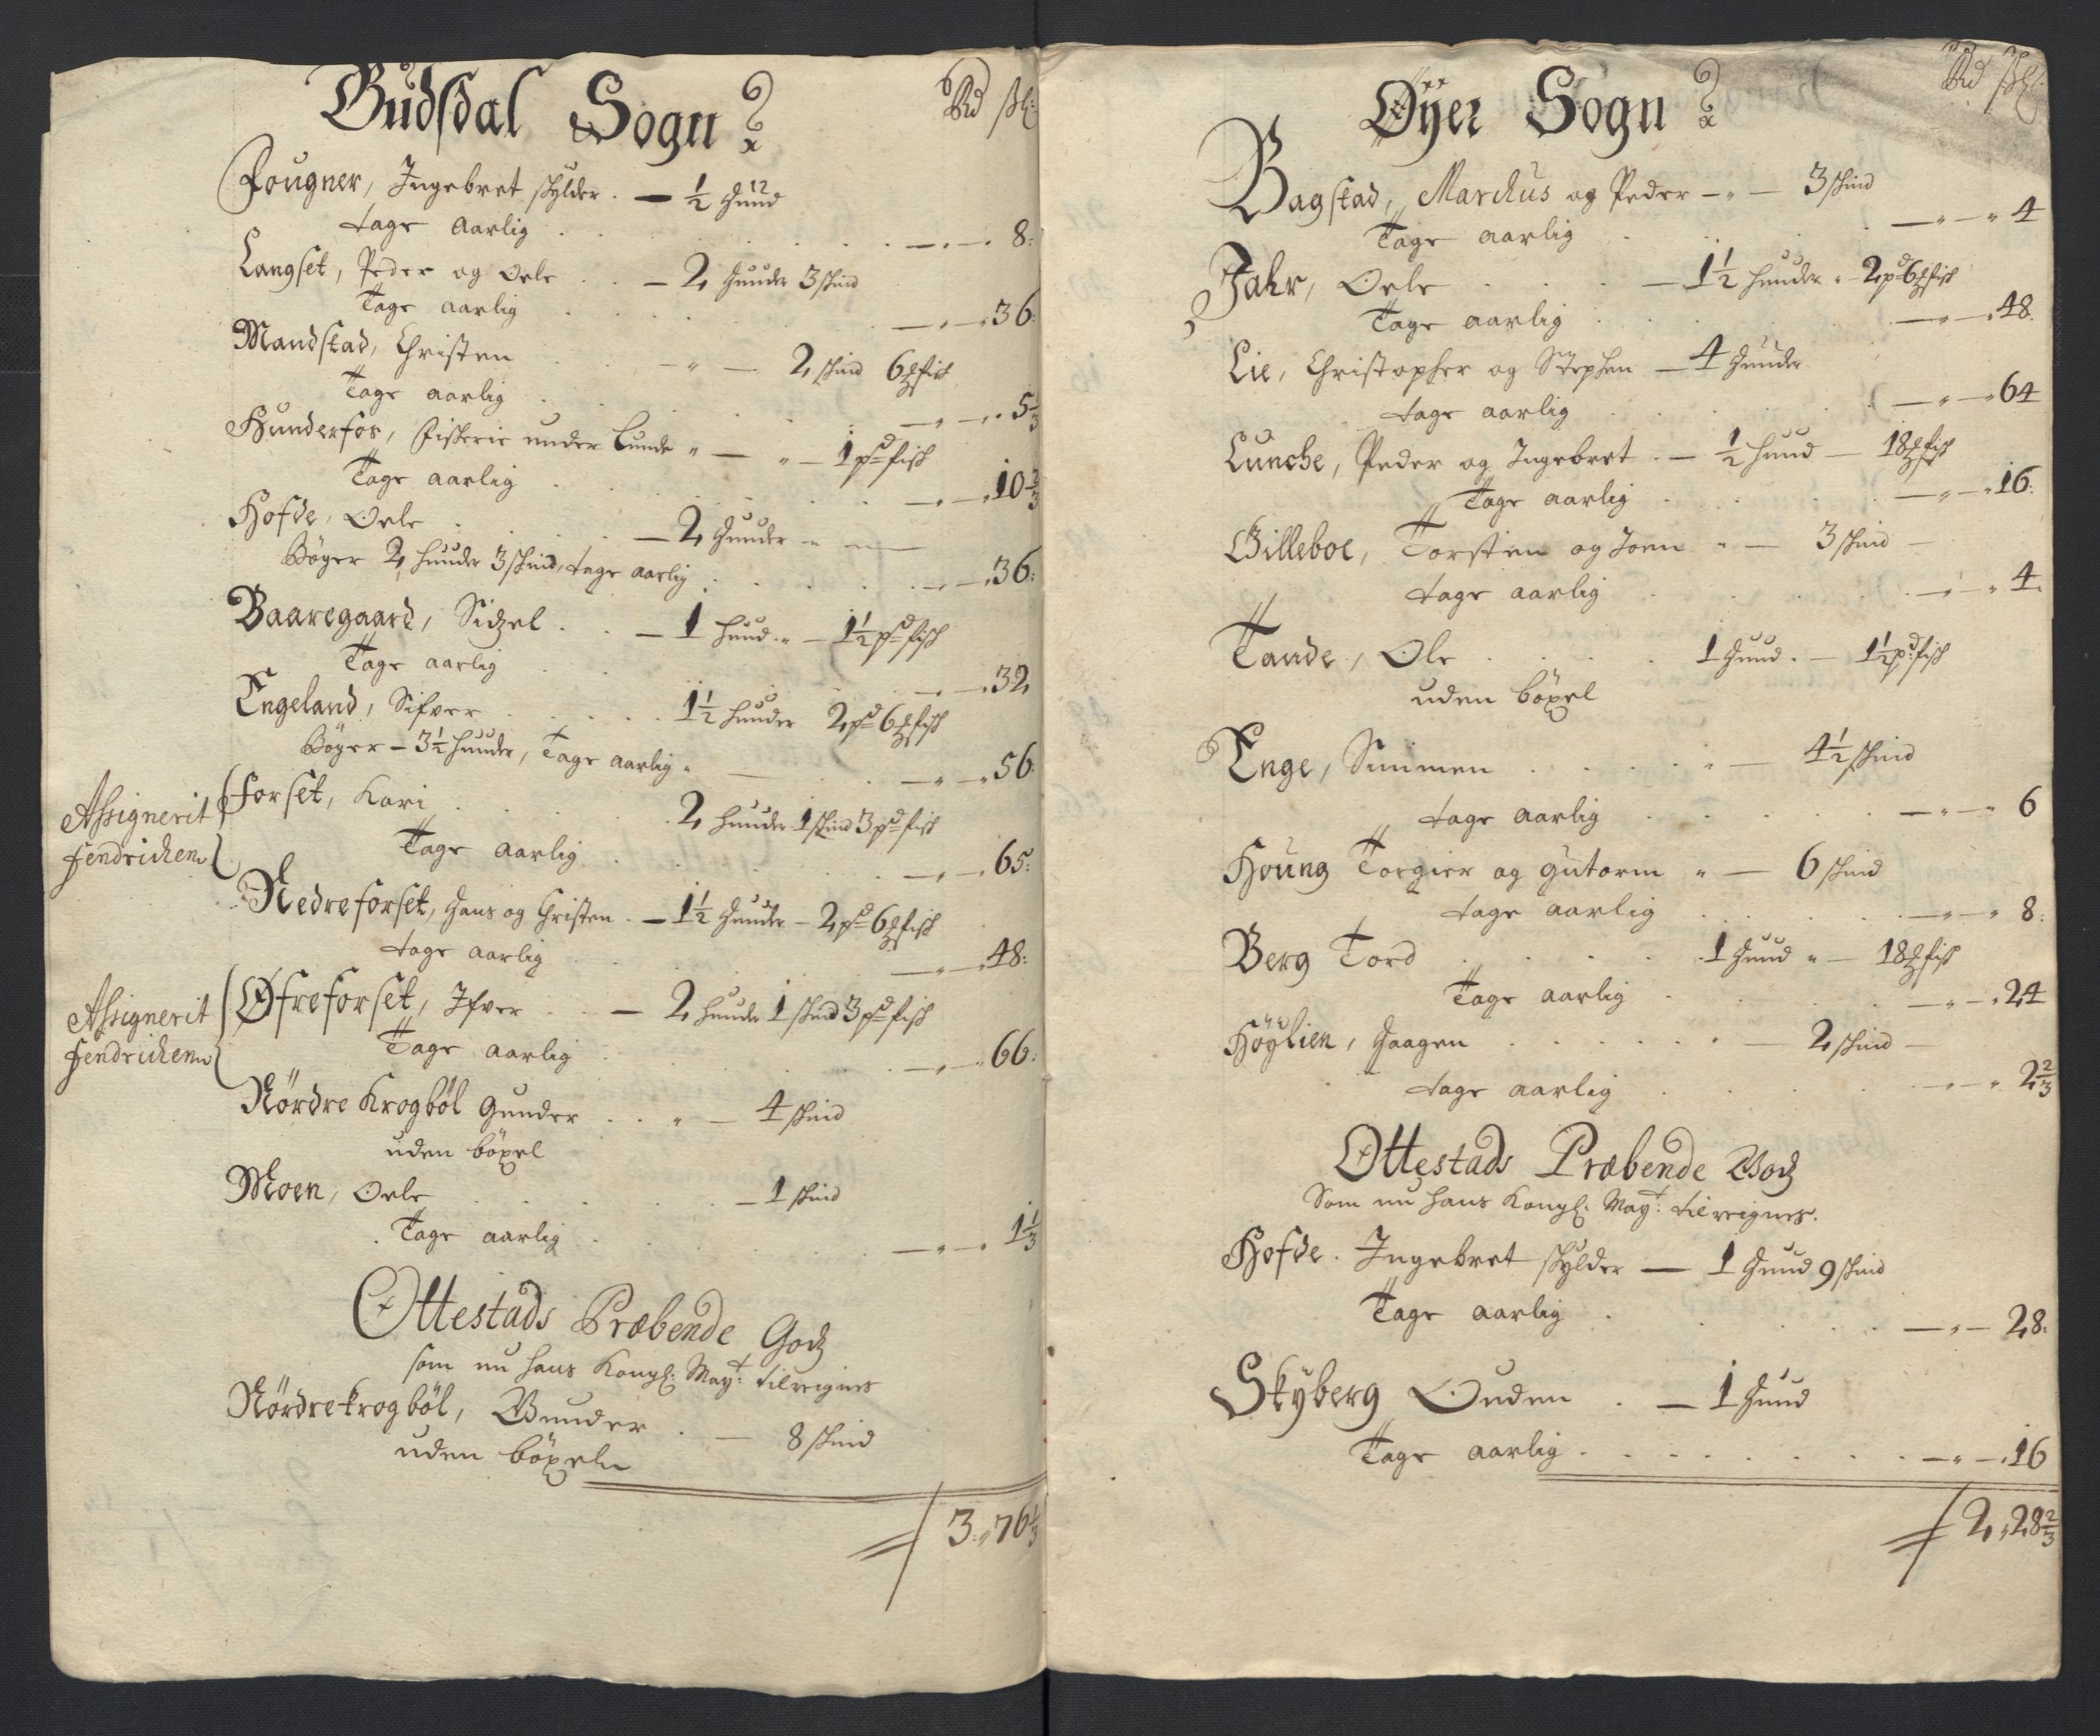 Gudsdal Sogn
Rd ſſ:
Fougner, Ingebret skylder . — ½ Huud
tage aarlig . . . — „ — „ 8:
Langset, Peder og Oele . . — 2 Huuder 3 skind
Tage aarlig . . . — „ — „ 36:
Mandstad, Christen . . — „ — 2 skind 6 ℔ fisk
Tage aarlig . . . — „ — „ 5⅓
Hunderfos, Fiskerie under Lunde „ — „ — 1 pd fisk
Tage aarlig . . . — „ — „ 10⅔
Hofde, Oele . . — 2 Huuder „ —
Böger 2 huuder 3 skind, tage aarlig . . . — „ — „ 36:
Baaregaard, Sidzel . . — 1 huud „ — 1½ pd fisk
Tage aarlig . . . — „ — „ 32
Engeland, Sifver . . . 1½ huuder 2 pd 6 ℔ fisk
Böger — 3½ huuder, Tage aarlig „ — . . — „ — „ 56:
Assignerit Fendrichen
Forset, Kari . . . 2 huuder 1 skind 3 pd fisk
Tage aarlig . . . — „ — „ 65:
Nedreforset, Hans og Christen . — 1½ Huuder — 2 pd 6 ℔ fisk
tage aarlig . . . — „ — „ 48:
Assignerit Fendrichen
Øfreforset, Ifver . . — 2 huuder 1 skind 3 pd fisk
Tage aarlig . . . — „ — „ 66:
Nördre Krogböl Gunder . . „ — 4 skind
uden böxel
Moen, Oele . . . — 1 skind
Tage aarlig . . . — „ — „ 1⅓
Ottestads Præbende Godz
som nu hans Kongl: Mayt: tilleignes
Nördrekrogböl, Gunder . — 8 skind
uden böxeln
3 „ 76⅓
Øyer Sogn
Rd ſſ:
Bagstad, Marchus og Peder — „ — 3 skind
Tage aarlig . . . — „ — „ 4
Jahr, Oele . . . — 1½ huuder „ — 2 pd 6 ℔ fisk
Tage aarlig . . . — „ — „ 48.
Lie, Christopher og Stephen — 4 Huuder
tage aarlig . . . — „ — „ 64
Lunche, Peder og Ingebret . — ½ huud — 18 ℔ fisk
Tage aarlig . . . — „ — „ 16:
Gilleboe, Torsten og Joen „ — 3 skind —
tage aarlig . . . — „ — „ 4.
Tande, Ole . . . 1 Huud . — 1½ pd: fisk
uden böxel
Enge, Simmen . . . „ — 4½ skind
tage aarlig . . . — „ — „ 6
Houng Torgier og Gutorm „ — 6 skind
tage aarlig . . . — „ — „ 8:
Berg Tord . . . 1 Huud „ — 18 ℔ fisk
Tage aarlig . . . — „ — „ 24
Höÿlien, Haagen . . . „ — 2 skind —
tage aarlig . . . — „ — „ 2⅔
Ottestads Præbende Godz
Som nu hans Kongl: Mayt: tilleignes.
Hofde. Ingebret skylder — 1 Huud 9 skind
Tage aarlig . . . — „ — 28:
Skÿberg Ouden . — 1 Huud
Tage aarlig . . . — „ — „ 16
2 „ 28⅔